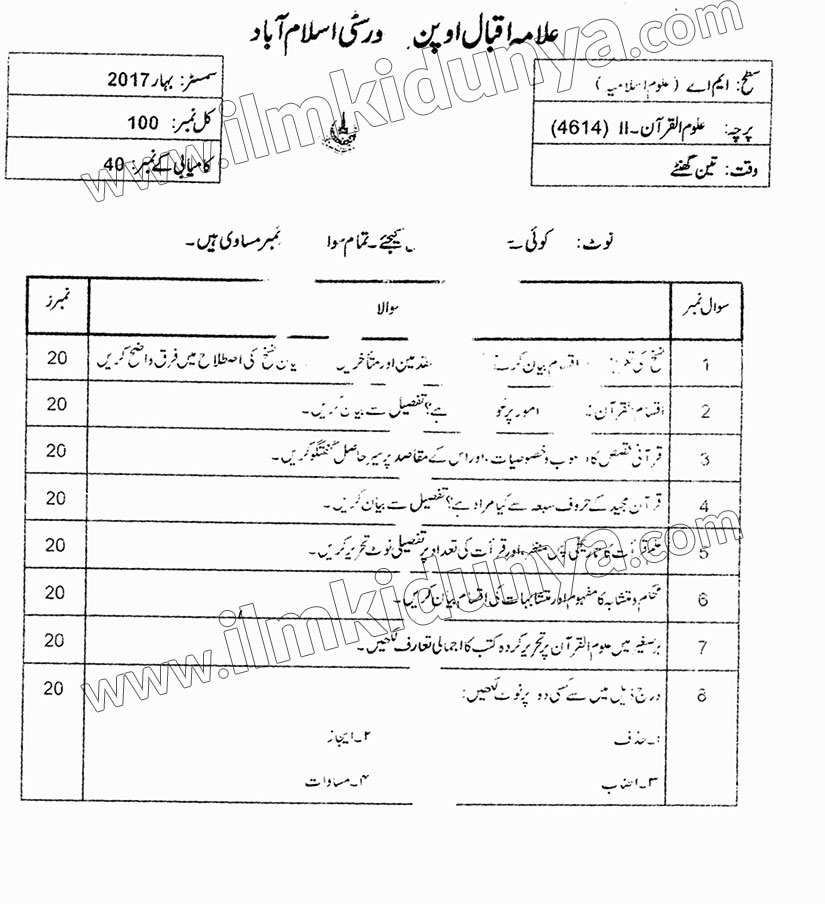 علامہ اقبال اوپن ورسٹی اسلام آباد
سطح: ایم اے (علوم اسلامیہ)
پرچہ: علوم القرآن۔II (4614)
وقت: تین گھنٹے
سمسٹر: بہار 2017
کل نمبر: 100
کامیابی کے نمبر: 40
نوٹ: کوئی کیجئے۔ تمام سوا نمبر مساوی ہیں۔
سوال نمبر سوالا نمبرز
1 نسخ کی اقسام بیان اور متأخرین نسخ کی اصطلاح میں فرق واضح کریں 20
2 اقسام القرآن امور پر ہے؟ تفصیل سے بیان کریں۔ 20
3 قرآنی قصص کا وخصوصیات، اور اس کے مقاصد پر سیر حاصل گفتگو کریں۔ 20
4 قرآن مجید کے حروف سبعہ سے کیا مراد ہے؟ تفصیل سے بیان کریں۔ 20
5 علم قرأت کا پس منظر، اور قرأت کی تعداد پر تفصیلی نوٹ تحریر کریں۔ 20
6 محکم و متشابہ کا مفہوم اور متشابہات کی اقسام بیان کریں۔ 20
7 برصغیر میں علوم القرآن پر تحریر کردہ کتب کا اجمالی تعارف لکھیں۔ 20
8 درج ذیل میں سے کسی دو پر نوٹ لکھیں: 20
۱۔حذف ۲۔ایجاز
۳۔اطناب ۴۔مساوات
www.ilmkidunya.com
www.ilmkidunya.com